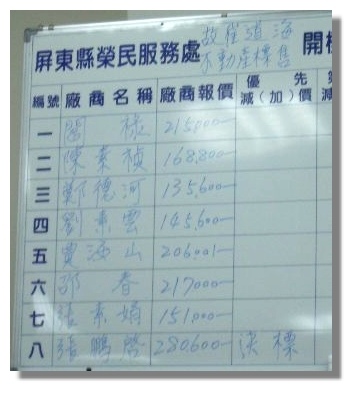 屏東縣榮民服務處 故崔道海 開標
不動產標售
編號 廠商名稱 廠商報價 優先減(加)價 第 減
一 閻 根 215000—
二 陳素禎 168,800—
三 鄭德河 135,600—
四 劉素雲 145,600—
五 賈海山 206,001—
六 邵 春 217000—
七 張素娟 151,000—
八 張鵬 280,600— 決標